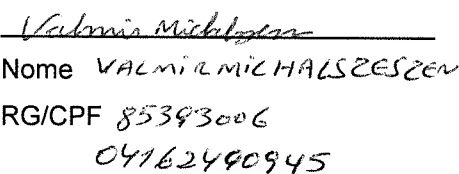 Valmir
Nome VALMIR MICHALSZESZEN
RG/CPF 85393006
04162490945